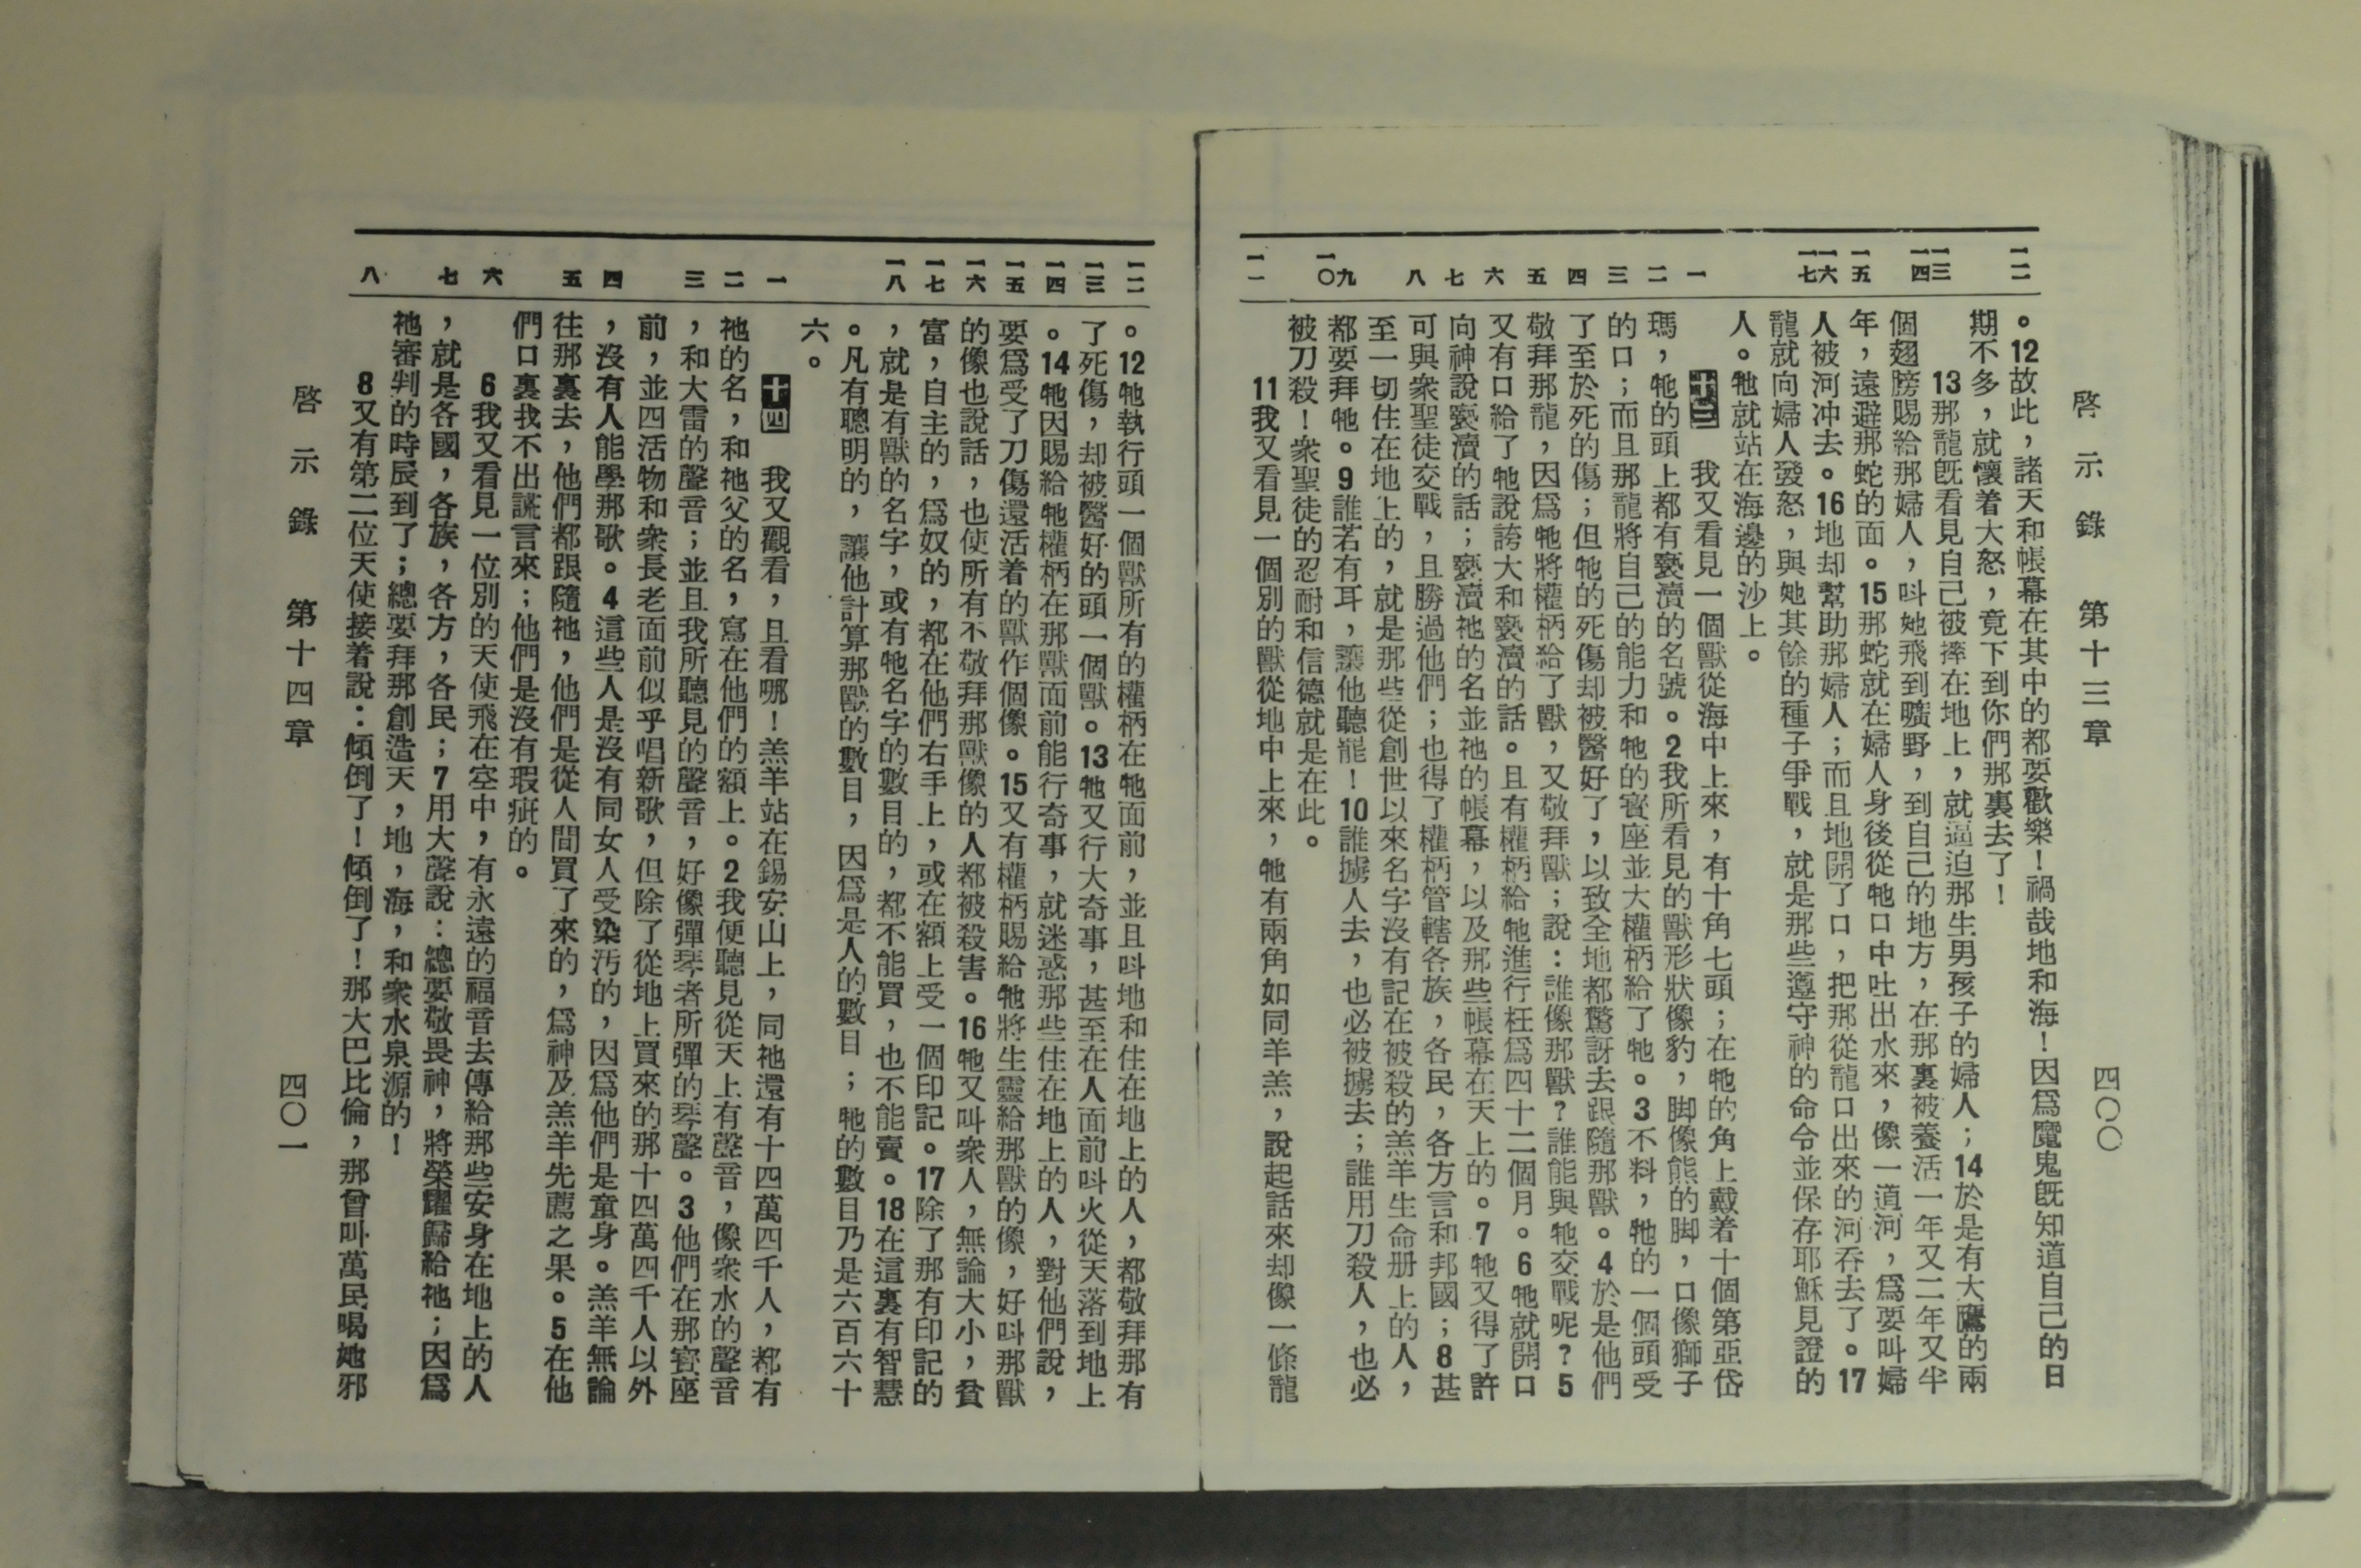 啓示錄 第十三章 四〇〇
一二 一三 一四 一五 一六 一七 一 二 三 四 五 六 七 八 九 一〇 一一
。12故此，諸天和帳幕在其中的都要歡樂！禍哉地和海！因爲魔鬼旣知道自己的日
期不多，就懷着大怒，竟下到你們那裏去了！
13那龍旣看見自己被摔在地上，就逼迫那生男孩子的婦人；14於是有大鷹的兩
個翅膀賜給那婦人，呌她飛到曠野，到自己的地方，在那裏被養活一年又二年又半
年，遠避那蛇的面。15那蛇就在婦人身後從牠口中吐出水來，像一道河，爲要叫婦
人被河冲去。16地却幫助那婦人；而且地開了口，把那從龍口出來的河吞去了。17
龍就向婦人發怒，與她其餘的種子爭戰，就是那些遵守神的命令並保存耶穌見證的
人。牠就站在海邊的沙上。
十三 我又看見一個獸從海中上來，有十角七頭；在牠的角上戴着十個第亞岱
瑪，牠的頭上都有褻瀆的名號。2我所看見的獸形狀像豹，脚像熊的脚，口像獅子
的口；而且那龍將自己的能力和牠的寶座並大權柄給了牠。3不料，牠的一個頭受
了至於死的傷；但牠的死傷却被醫好了，以致全地都驚訝去跟隨那獸。4於是他們
敬拜那龍，因爲牠將權柄給了獸，又敬拜獸；說：誰像那獸？誰能與牠交戰呢？5
又有口給了牠說誇大和褻瀆的話。且有權柄給牠進行枉爲四十二個月。6牠就開口
向神說褻瀆的話；褻瀆祂的名並祂的帳幕，以及那些帳幕在天上的。7牠又得了許
可與衆聖徒交戰，且勝過他們；也得了權柄管轄各族，各民，各方言和邦國；8甚
至一切住在地上的，就是那些從創世以來名字沒有記在被殺的羔羊生命册上的人，
都要拜牠。9誰若有耳，讓他聽罷！10誰擄人去，也必被擄去；誰用刀殺人，也必
被刀殺！衆聖徒的忍耐和信德就是在此。
11我又看見一個別的獸從地中上來，牠有兩角如同羊羔，說起話來却像一條龍
一二 一三 一四 一五 一六 一七 一八 一 二 三 四 五 六 七 八
。12牠執行頭一個獸所有的權柄在牠面前，並且呌地和住在地上的人，都敬拜那有
了死傷，却被醫好的頭一個獸。13牠又行大奇事，甚至在人面前呌火從天落到地上
。14牠因賜給牠權柄在那獸面前能行奇事，就迷惑那些住在地上的人，對他們說，
要爲受了刀傷還活着的獸作個像。15又有權柄賜給牠將生靈給那獸的像，好呌那獸
的像也說話，也使所有不敬拜那獸像的人都被殺害。16牠又叫衆人，無論大小，貧
富，自主的，爲奴的，都在他們右手上，或在額上受一個印記。17除了那有印記的
，就是有獸的名字，或有牠名字的數目的，都不能買，也不能賣。18在這裏有智慧
。凡有聰明的，讓他計算那獸的數目，因爲是人的數目；牠的數目乃是六百六十
六。
十四 我又觀看，且看哪！羔羊站在錫安山上，同祂還有十四萬四千人，都有
祂的名，和祂父的名，寫在他們的額上。2我便聽見從天上有聲音，像衆水的聲音
，和大雷的聲音；並且我所聽見的聲音，好像彈琴者所彈的琴聲。3他們在那寶座
前，並四活物和衆長老面前似乎唱新歌，但除了從地上買來的那十四萬四千人以外
，沒有人能學那歌。4這些人是沒有同女人受染汚的，因爲他們是童身。羔羊無論
往那裏去，他們都跟隨祂，他們是從人間買了來的，爲神及羔羊先薦之果。5在他
們口裏找不出謊言來；他們是沒有瑕疵的。
6我又看見一位別的天使飛在空中，有永遠的福音去傳給那些安身在地上的人
，就是各國，各族，各方，各民；7用大聲說：總要敬畏神，將榮耀歸給祂；因爲
祂審判的時辰到了；總要拜那創造天，地，海，和衆水泉源的！
8又有第二位天使接着說：傾倒了！傾倒了！那大巴比倫，那曾叫萬民喝她邪
啓示錄 第十四章 四〇一